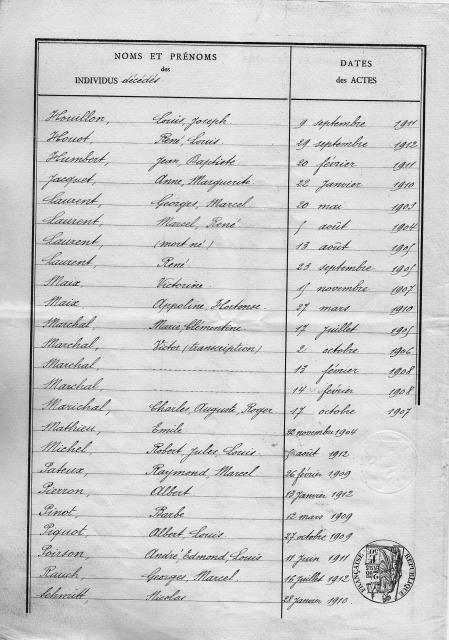 NOMS ET PRÉNOMS DATES
des
INDIVIDUS décédés. des ACTES
Houillon, Louis, Joseph 9 septembre 1911
Houot, René, Louis 29 septembre 1912
Humbert, Jean, Baptiste 20 février 1911
Jacquot, Anne, Marguerite. 22 janvier 1910
Laurent, Georges, Marcel 20 mai 1903
Laurent, Marcel, René 5 août 1904
Laurent, (mort né) 13 août 1905
Laurent, René 23 septembre 1905
Maix, Victorine 15 novembre 1907
Maix Appoline, Hortense 27 mars 1910
Marchal, Marie, Clémentine 17 juillet 1905
Marchal, Victor (transcription) 2 octobre 1906
Marchal, 13 février 1908
Marchal, 14 février 1908
Marichal, Charles, Auguste, Roger 17 octobre 1907
Mathieu, Emile 22 novembre 1904
Michel, Robert, Jules, Louis août 1912
Pateux, Raymond, Marcel 26 février 1909
Pierron, Albert 13 janvier 1912
Pinot, Barbe 12 mars 1909
Piquot, Albert, Louis 27 octobre 1909
Poirson, André, Edmond, Louis 11 juin 1911
Rauch, Georges, Marcel 16 juillet 1912
Schmitt, Nicolas 28 janvier 1910.
RÉPUBLIQUE FRANÇAISE